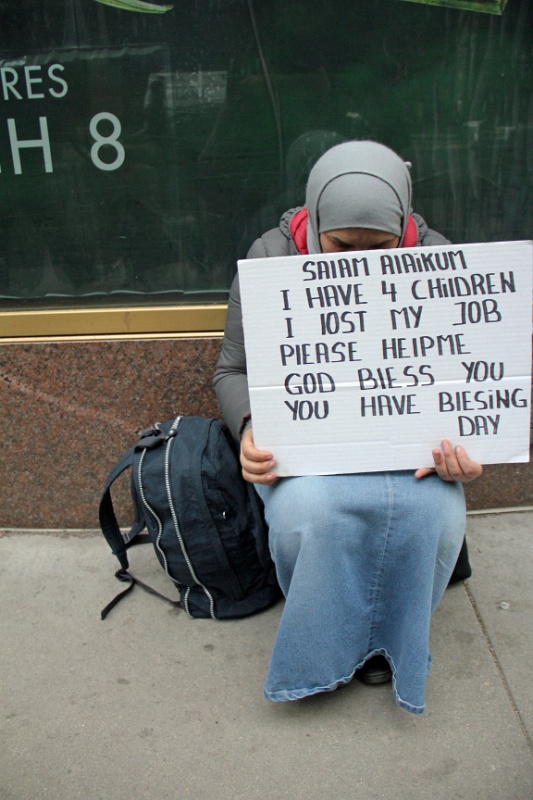 RES
H 8
SAlAM AlAiKUM
I HAVE 4 CHilDREN
I lOST MY JOB
PlEASE HElPME
GOD BlESS YOU
YOU HAVE BlESiNG
DAY